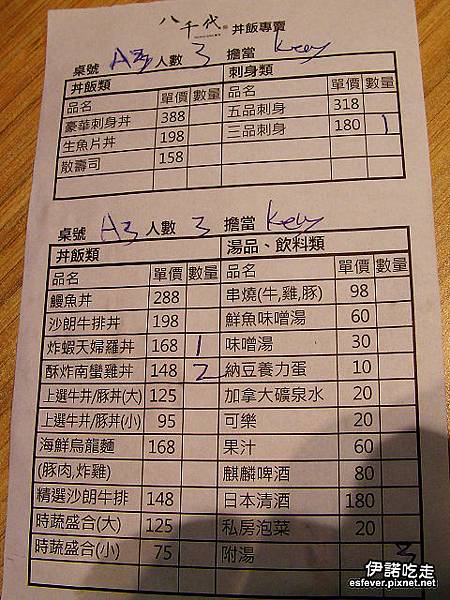 八千代 丼飯專賣
桌號 A3 人數 3 擔當 Kevy
丼飯類 刺身類
品名 單價 數量 品名 單價 數量
豪華刺身丼 388 五品刺身 318
生魚片丼 198 三品刺身 180 1
散壽司 158
桌號 A3 人數 3 擔當 Kevy
丼飯類 湯品、飲料類
品名 單價 數量 品名 單價 數量
鰻魚丼 288 串燒(牛,雞,豚) 98
沙朗牛排丼 198 鮮魚味噌湯 60
炸蝦天婦羅丼 168 1 味噌湯 30
酥炸南蠻雞丼 148 2 納豆養力蛋 10
上選牛丼/豚丼(大) 125 加拿大礦泉水 20
上選牛丼/豚丼(小) 95 可樂 20
海鮮烏龍麵 168 果汁 60
(豚肉,炸雞) 麒麟啤酒 80
精選沙朗牛排 148 日本清酒 180
時蔬盛合(大) 125 私房泡菜 20
時蔬盛合(小) 75 附湯 3
伊諾吃走
esfever.pixnet.net